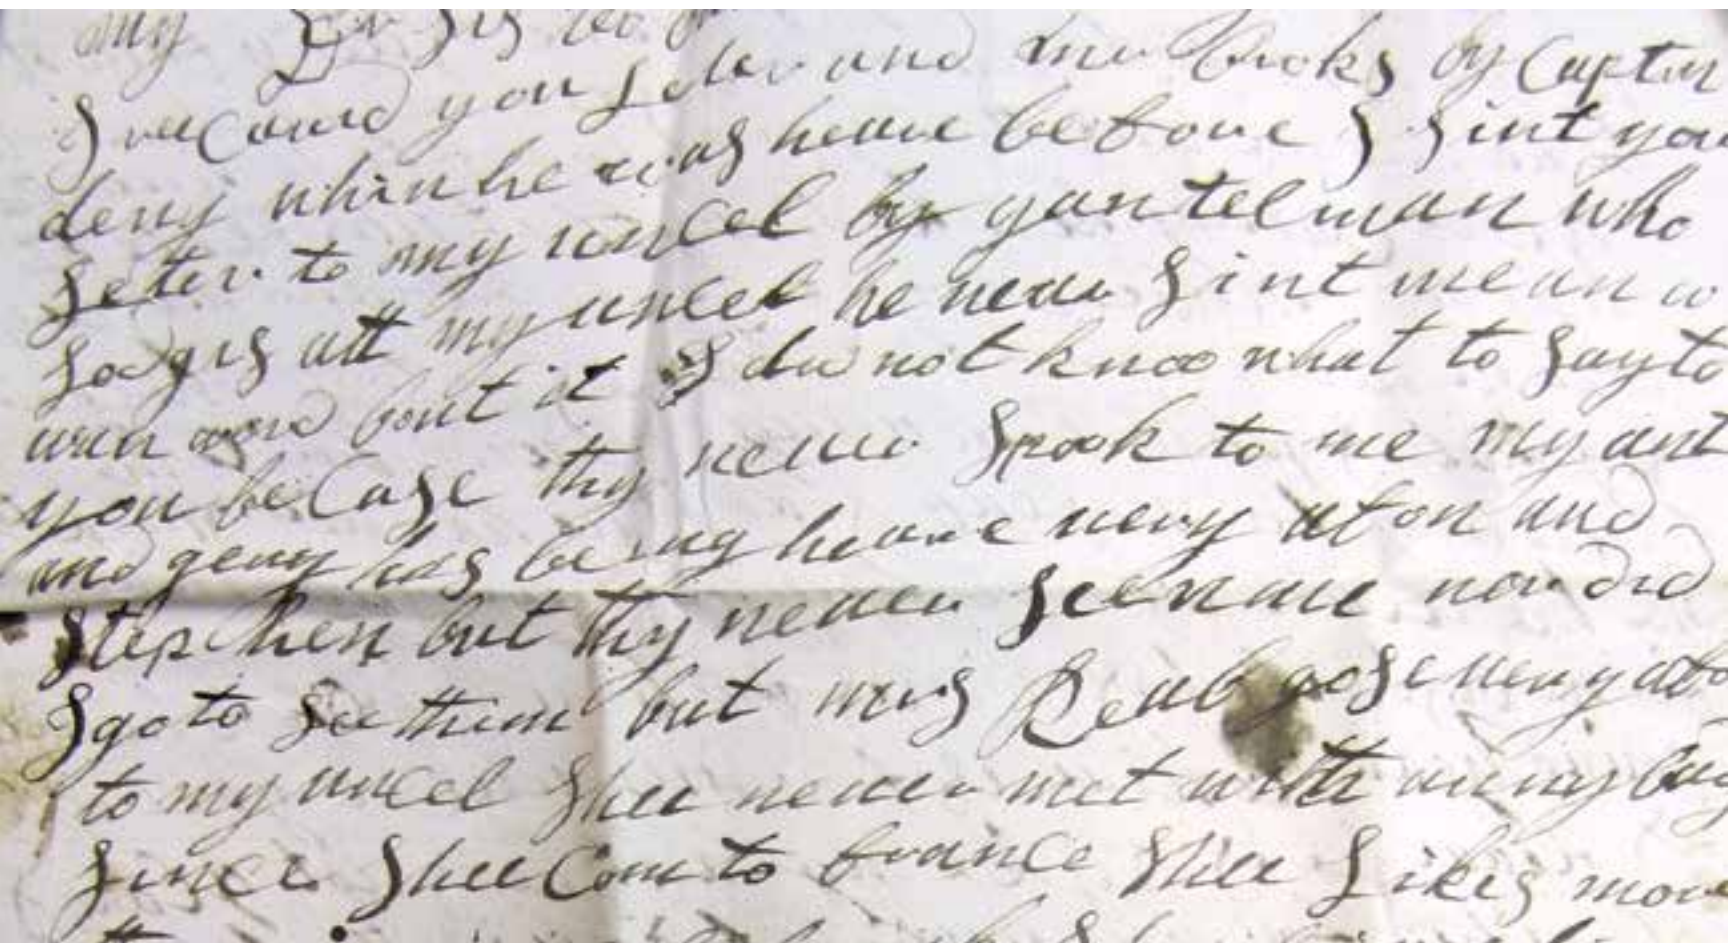 my Dr Sister
I reecaved you Leter and two Books by Captin
deny whin he was heare before I Sint you
Leter to my uncel by gantelman who
Lodgis att my uncel he never Sint me an
wan word bout it I du not know what to Say to
you be Case thy never Spook to me my ant
and geny has being heare very afon and
Stephen but thy never See me nor did
I go to See them but mis gose very
to my uncel Shee never met with anny
Since Shee Com to france Shee Likes more